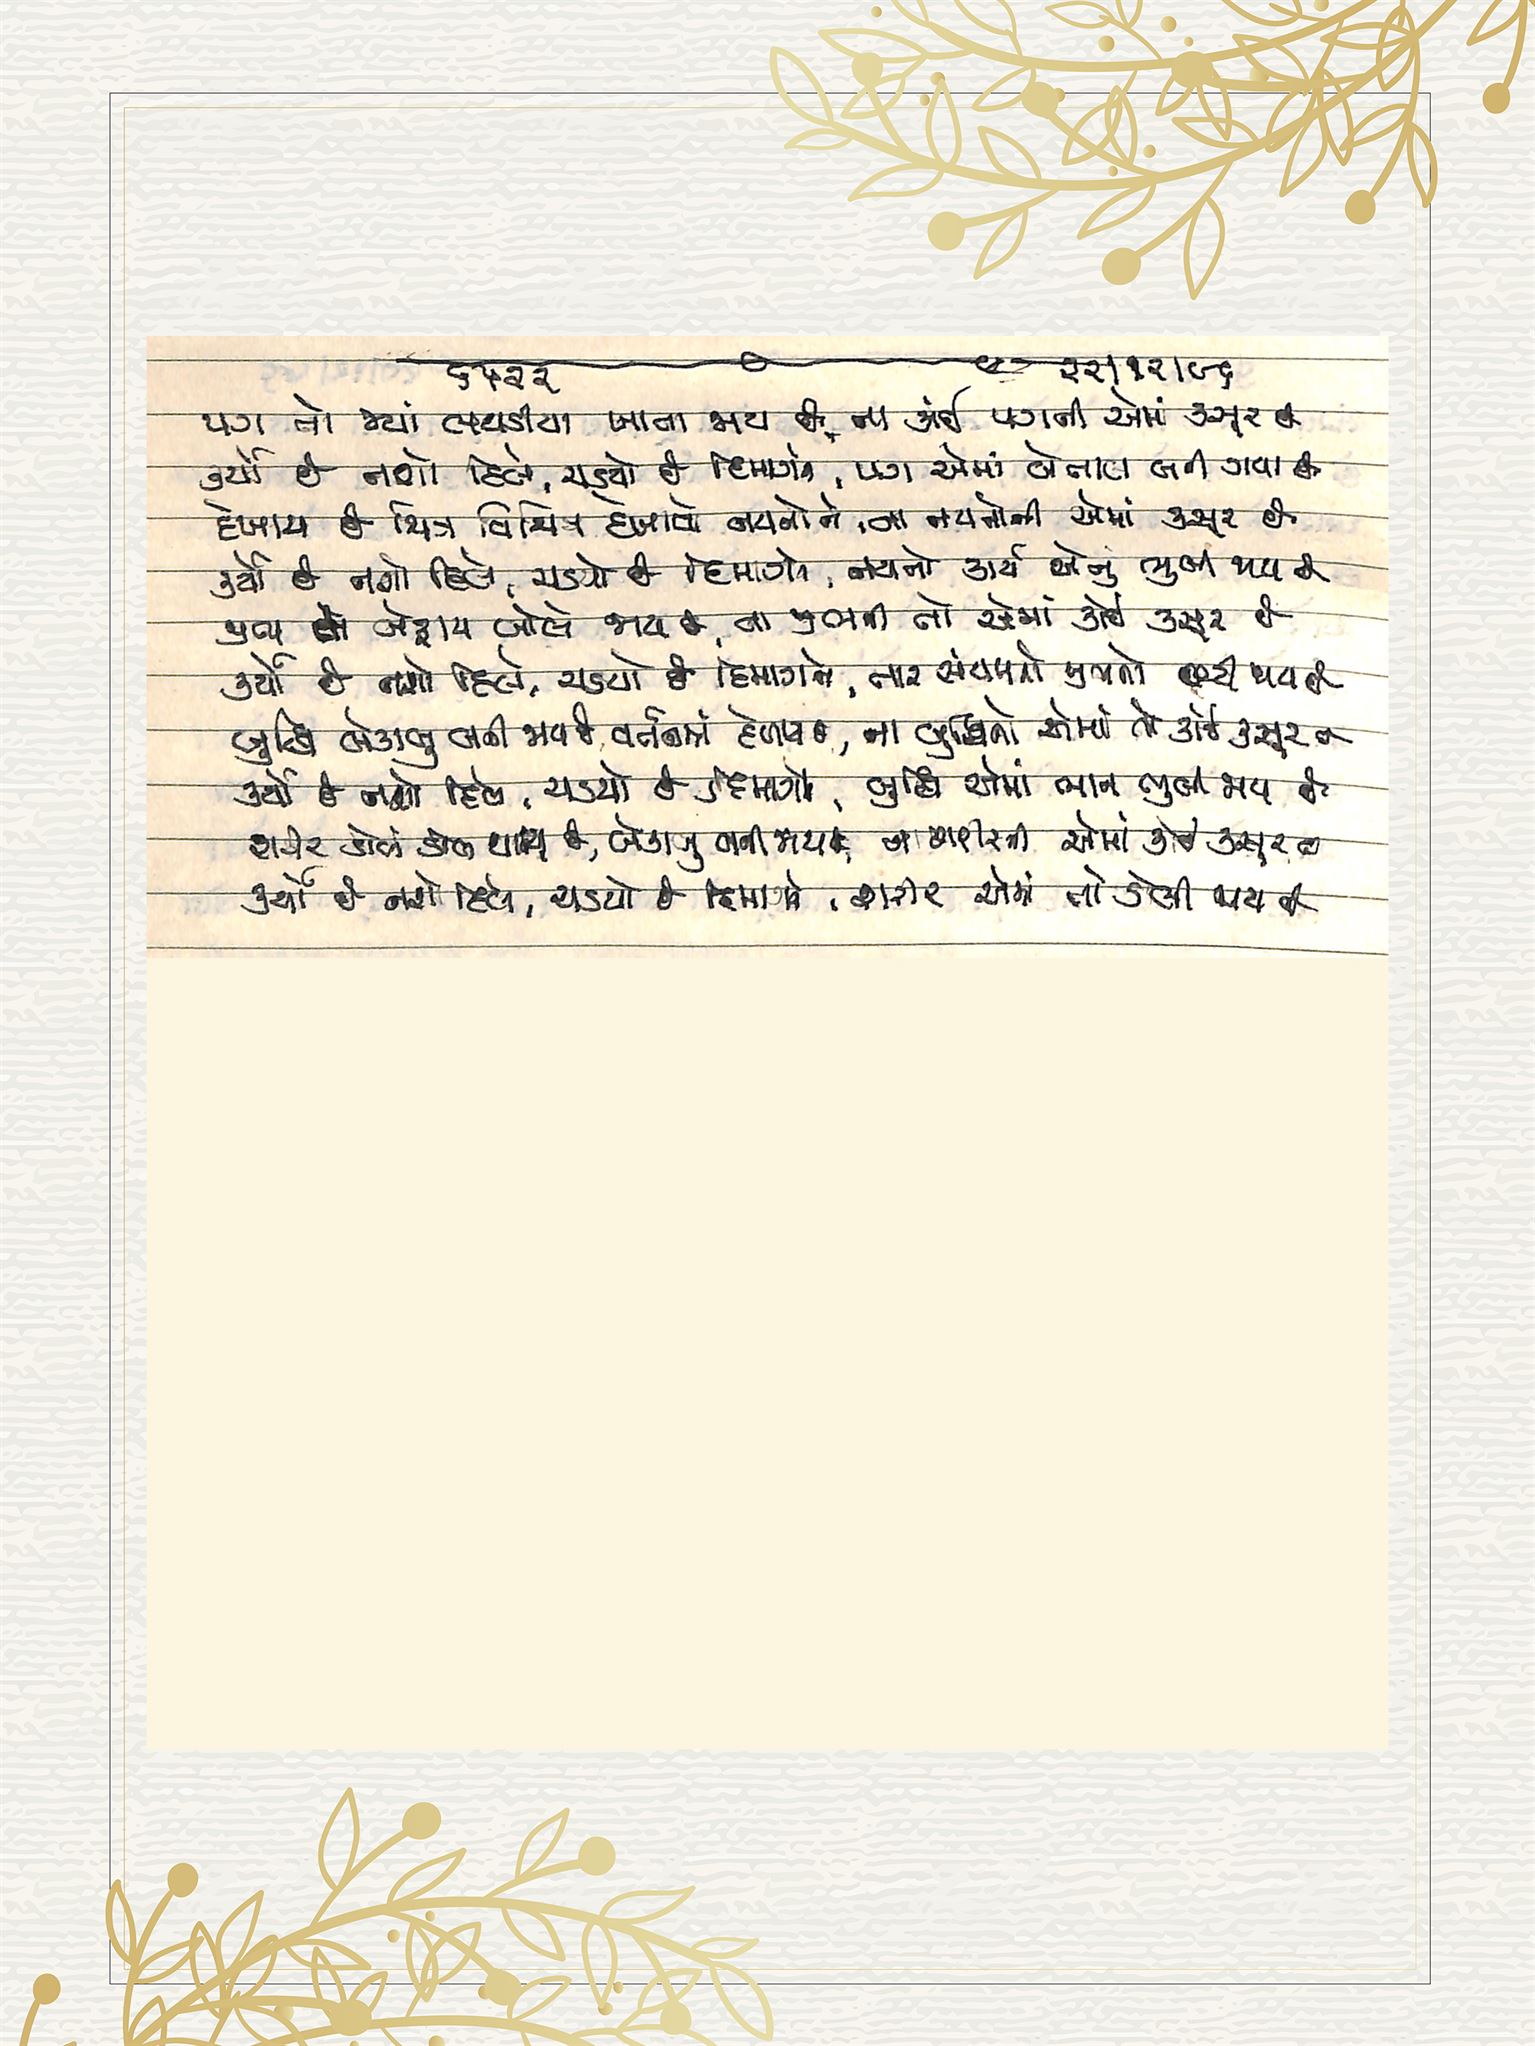 ૬૫૨૨ ૨૨|૧૨|૯૬
પગ તો જ્યાં લથડીયા ખાતા જાય છે, ના કાંઈ પગની એમાં કસૂર છે
કર્યો છે નશો દિલે, ચડયો છે દિમાગને, પગ એમાં બેતાલ બની ગયા છે
દેખાય છે ચિત્ર વિચિત્ર દેખાવો નયનોને, ના નયનોની એમાં કસૂર છે
કર્યો છે નશો દિલે, ચડયો છે દિમાગને, નયનો કાર્ય એનું ભુલી જાય છે
જીભ તો બેફામ બોલે જાય છે, ના જીભની તો એમાં કોઈ કસૂર છે
કર્યો છે નશો દિલે, ચડયો છે દિમાગને, તાર સંયમનો જીભનો છૂટી જાય છે
બુદ્ધિ બેકાબુ બની જાય છે વર્તનમાં દેખાય છે, ના બુદ્ધિનો એમાં તો કોઈ કસૂર છે
કર્યો છે નશો દિલે, ચડયો છે દિમાગને, બુદ્ધિ એમાં ભાન ભુલી જાય છે
શરીર ડોલં ડોલ થાય છે, બેકાબુ બની જાય છે, ના શરીરની એમાં કોઈ કસૂર છે
કર્યો છે નશો દિલે, ચડયો છે દિમાગને, શરીર એમાં તો ડોલી જાય છે